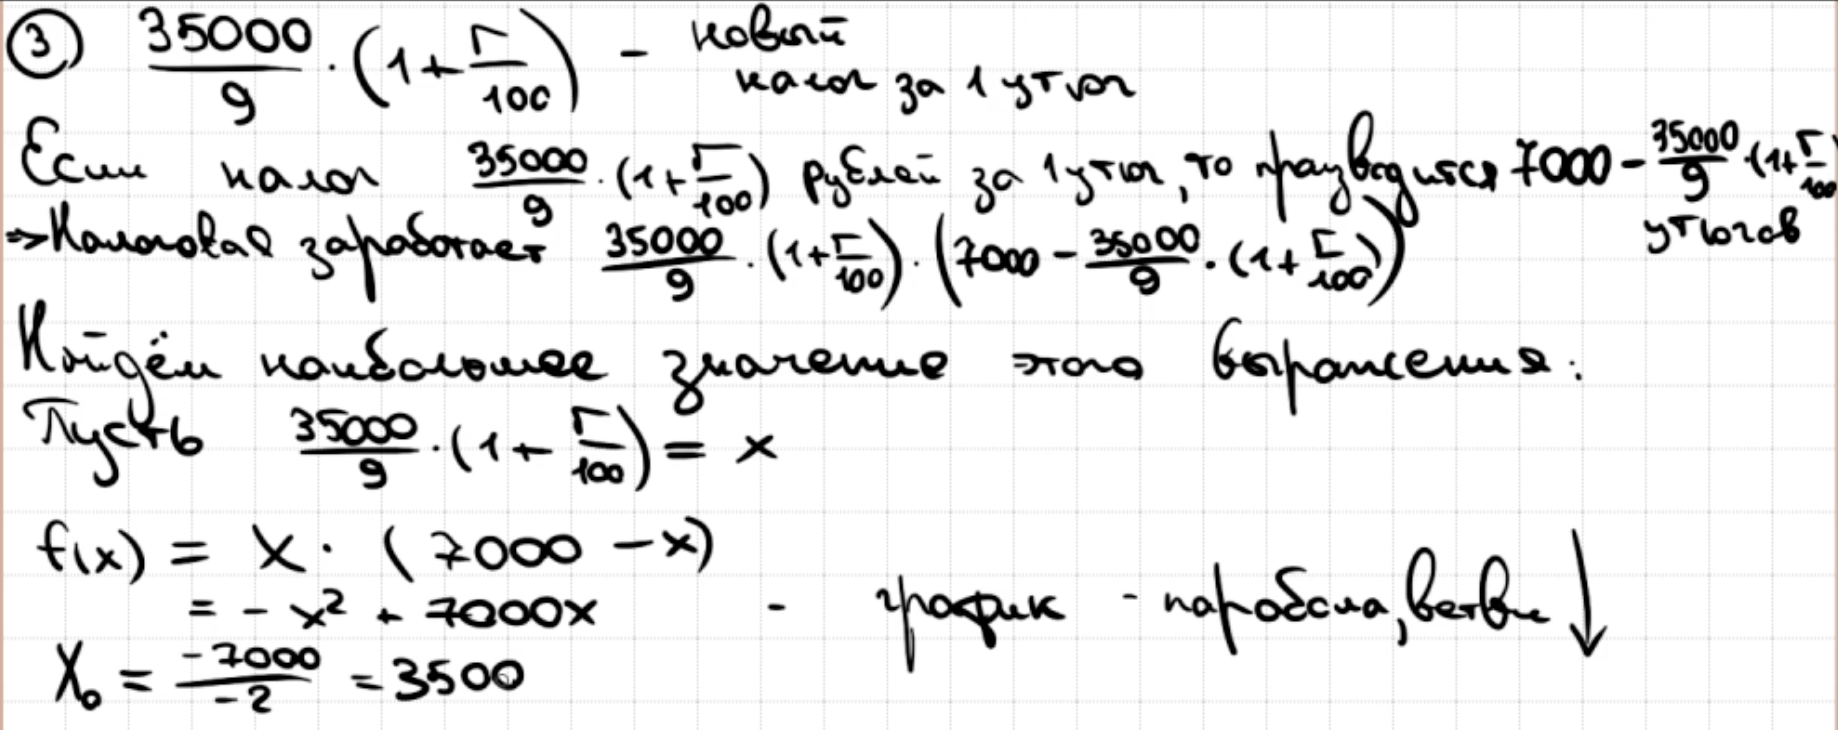 ③ 35000/9 · (1 + r/100) - новый
налог за 1 утюг
Если налог 35000/9 · (1 + r/100) рублей за 1 утюг, то производится 7000 - 35000/9 · (1 + r/100)
утюгов
⇒ Налоговая заработает 35000/9 · (1 + r/100) · (7000 - 35000/9 · (1 + r/100))
Найдём наибольшее значение этого выражения:
Пусть 35000/9 · (1 + r/100) = x
f(x) = x · (7000 - x)
= - x² + 7000x - график - парабола, ветви ↓
X₀ = -7000/-2 = 3500